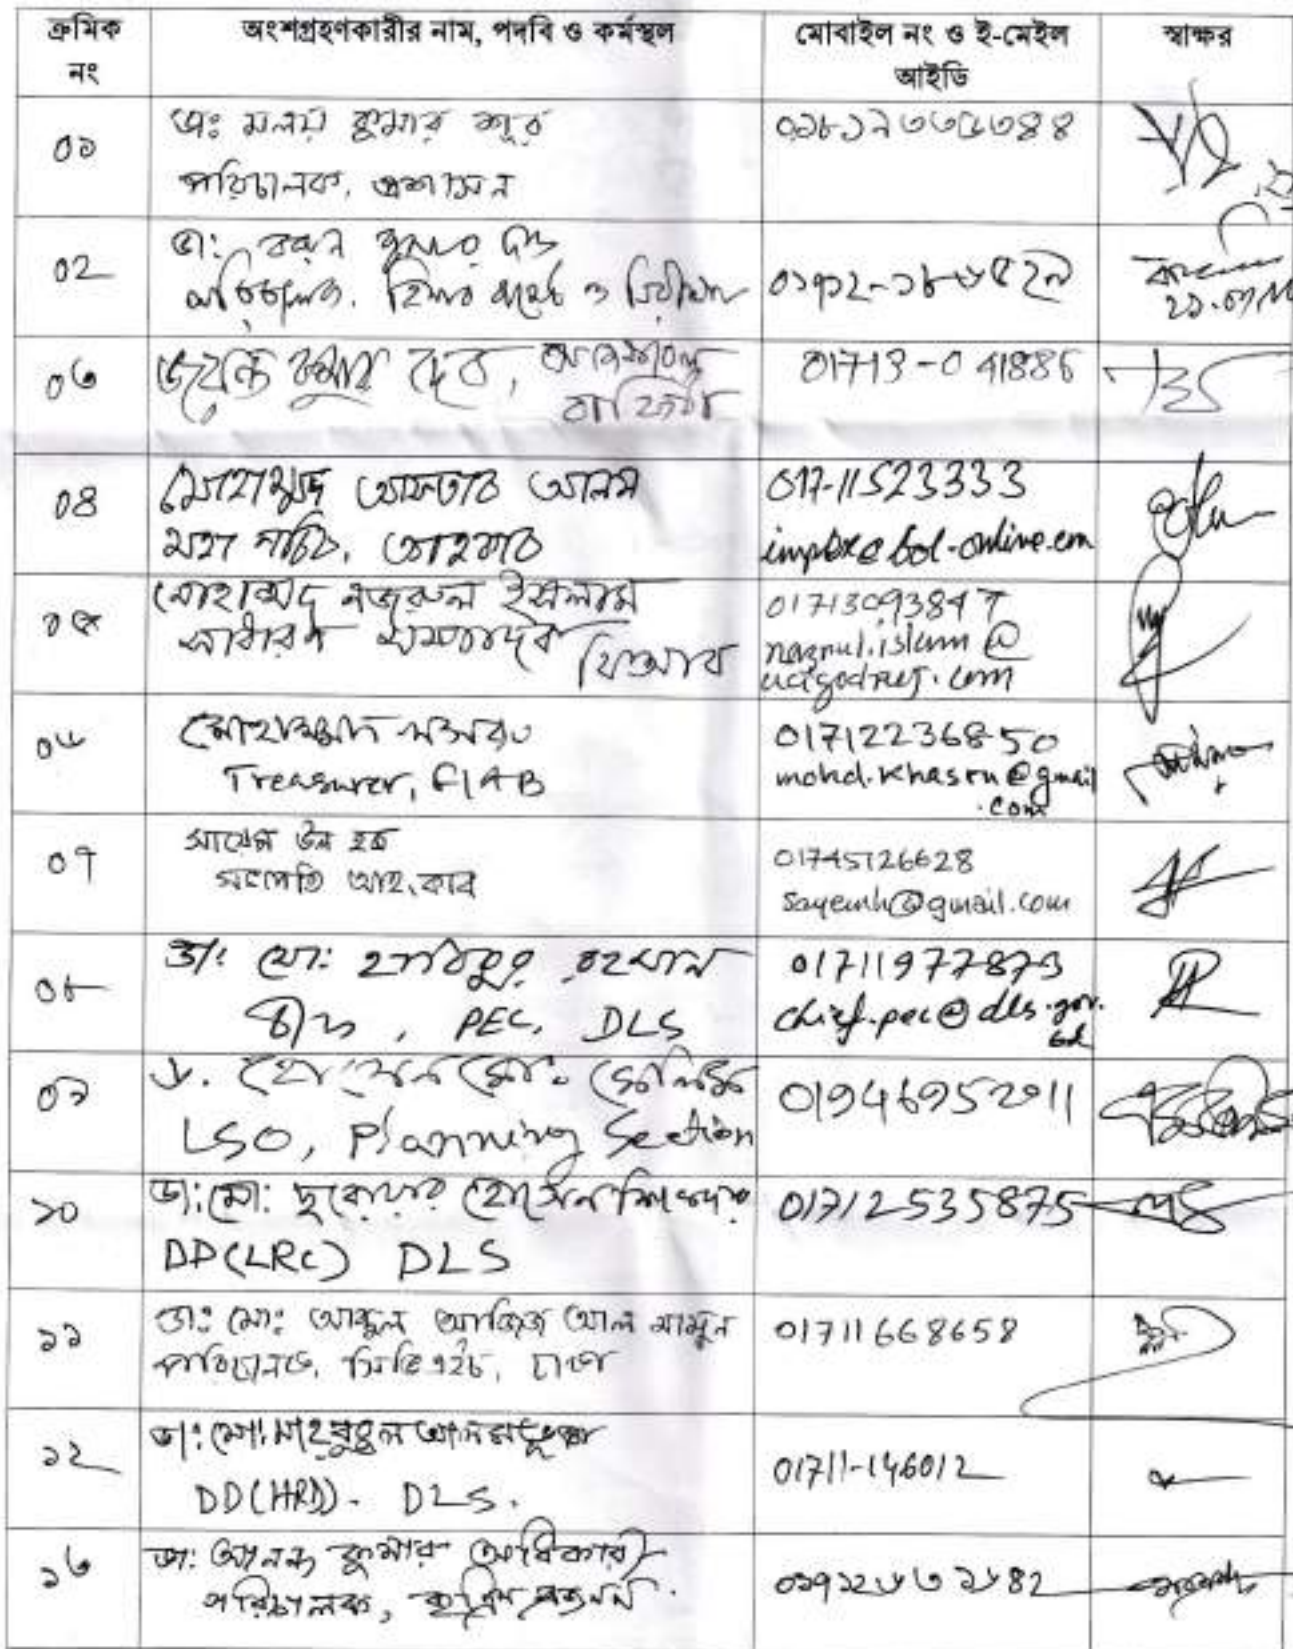 ক্রমিক নং
অংশগ্রহণকারীর নাম, পদবি ও কর্মস্থল
মোবাইল নং ও ই-মেইল আইডি
স্বাক্ষর
০১
ডাঃ মলয় কুমার শূর
পরিচালক, প্রশাসন
০২
ডা: কুমার দত্ত
পরিচালক, হিসাব বাজেট ও নিরীক্ষা
০৩
জয়ন্ত কুমার দেব,
০১৭13-041886
০৪
মোহাম্মদ আফতাব আলম
মহা সচিব, আহকাব
017-11523333
০৫
মোহাম্মদ নজরুল ইসলাম
সাধারণ সম্পাদক
01713093847
nazrul.islam@
০৬
মোহাম্মদ খসরু
Treasurer, FIAB
01712236850
mohd.khasru@gmail
.com
০৭
সায়েম উল হক
সভাপতি আহকাব
01745126628
sayemh@gmail.com
০৮
ডা: মো: হাবিবুর রহমান
চীফ, PEC, DLS
01711977873
chief.pec@dls.gov.
bd
০৯
ড. হোসেন মো: সেলিম
LSO, Planning Section
01946952011
১০
ডা: মো: ছরোয়ার হোসেন
DD(LRC) DLS
01712535875
১১
ডাঃ মোঃ আব্দুল আজিজ আল মামুন
পরিচালক, সিডিএইচ, ঢাকা
01711668658
১২
ডা: মো: মাহবুবুল আলম ভূঞা
DD(HRD). DLS.
01711-146012
১৩
ডা: আনন্দ কুমার অধিকারী
পরিচালক, কৃত্রিম প্রজনন